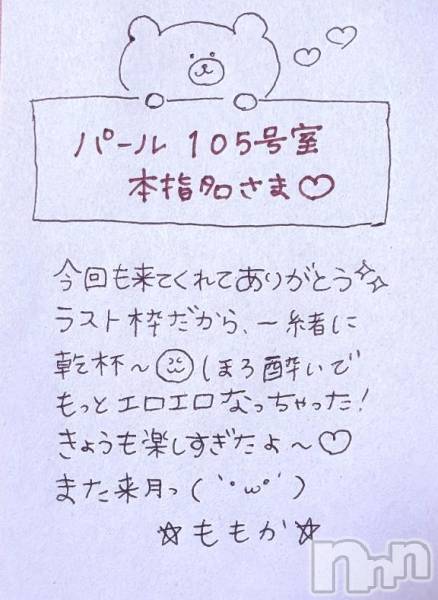 パール 105号室
本指名さま♡
今回も来てくれてありがとう✨
ラスト枠だから、一緒に
乾杯〜 ほろ酔いで
もっとエロエロなっちゃった!
きょうも楽しすぎたよ〜♡
また来月っ(｀･ω･´)
☆ももか☆
nnn